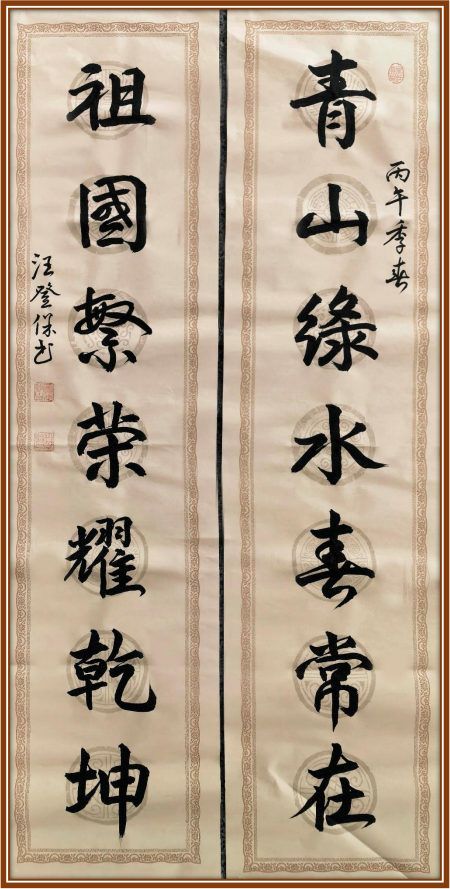 丙午季春
青山綠水春常在
祖國繁荣耀乾坤
汪登保书